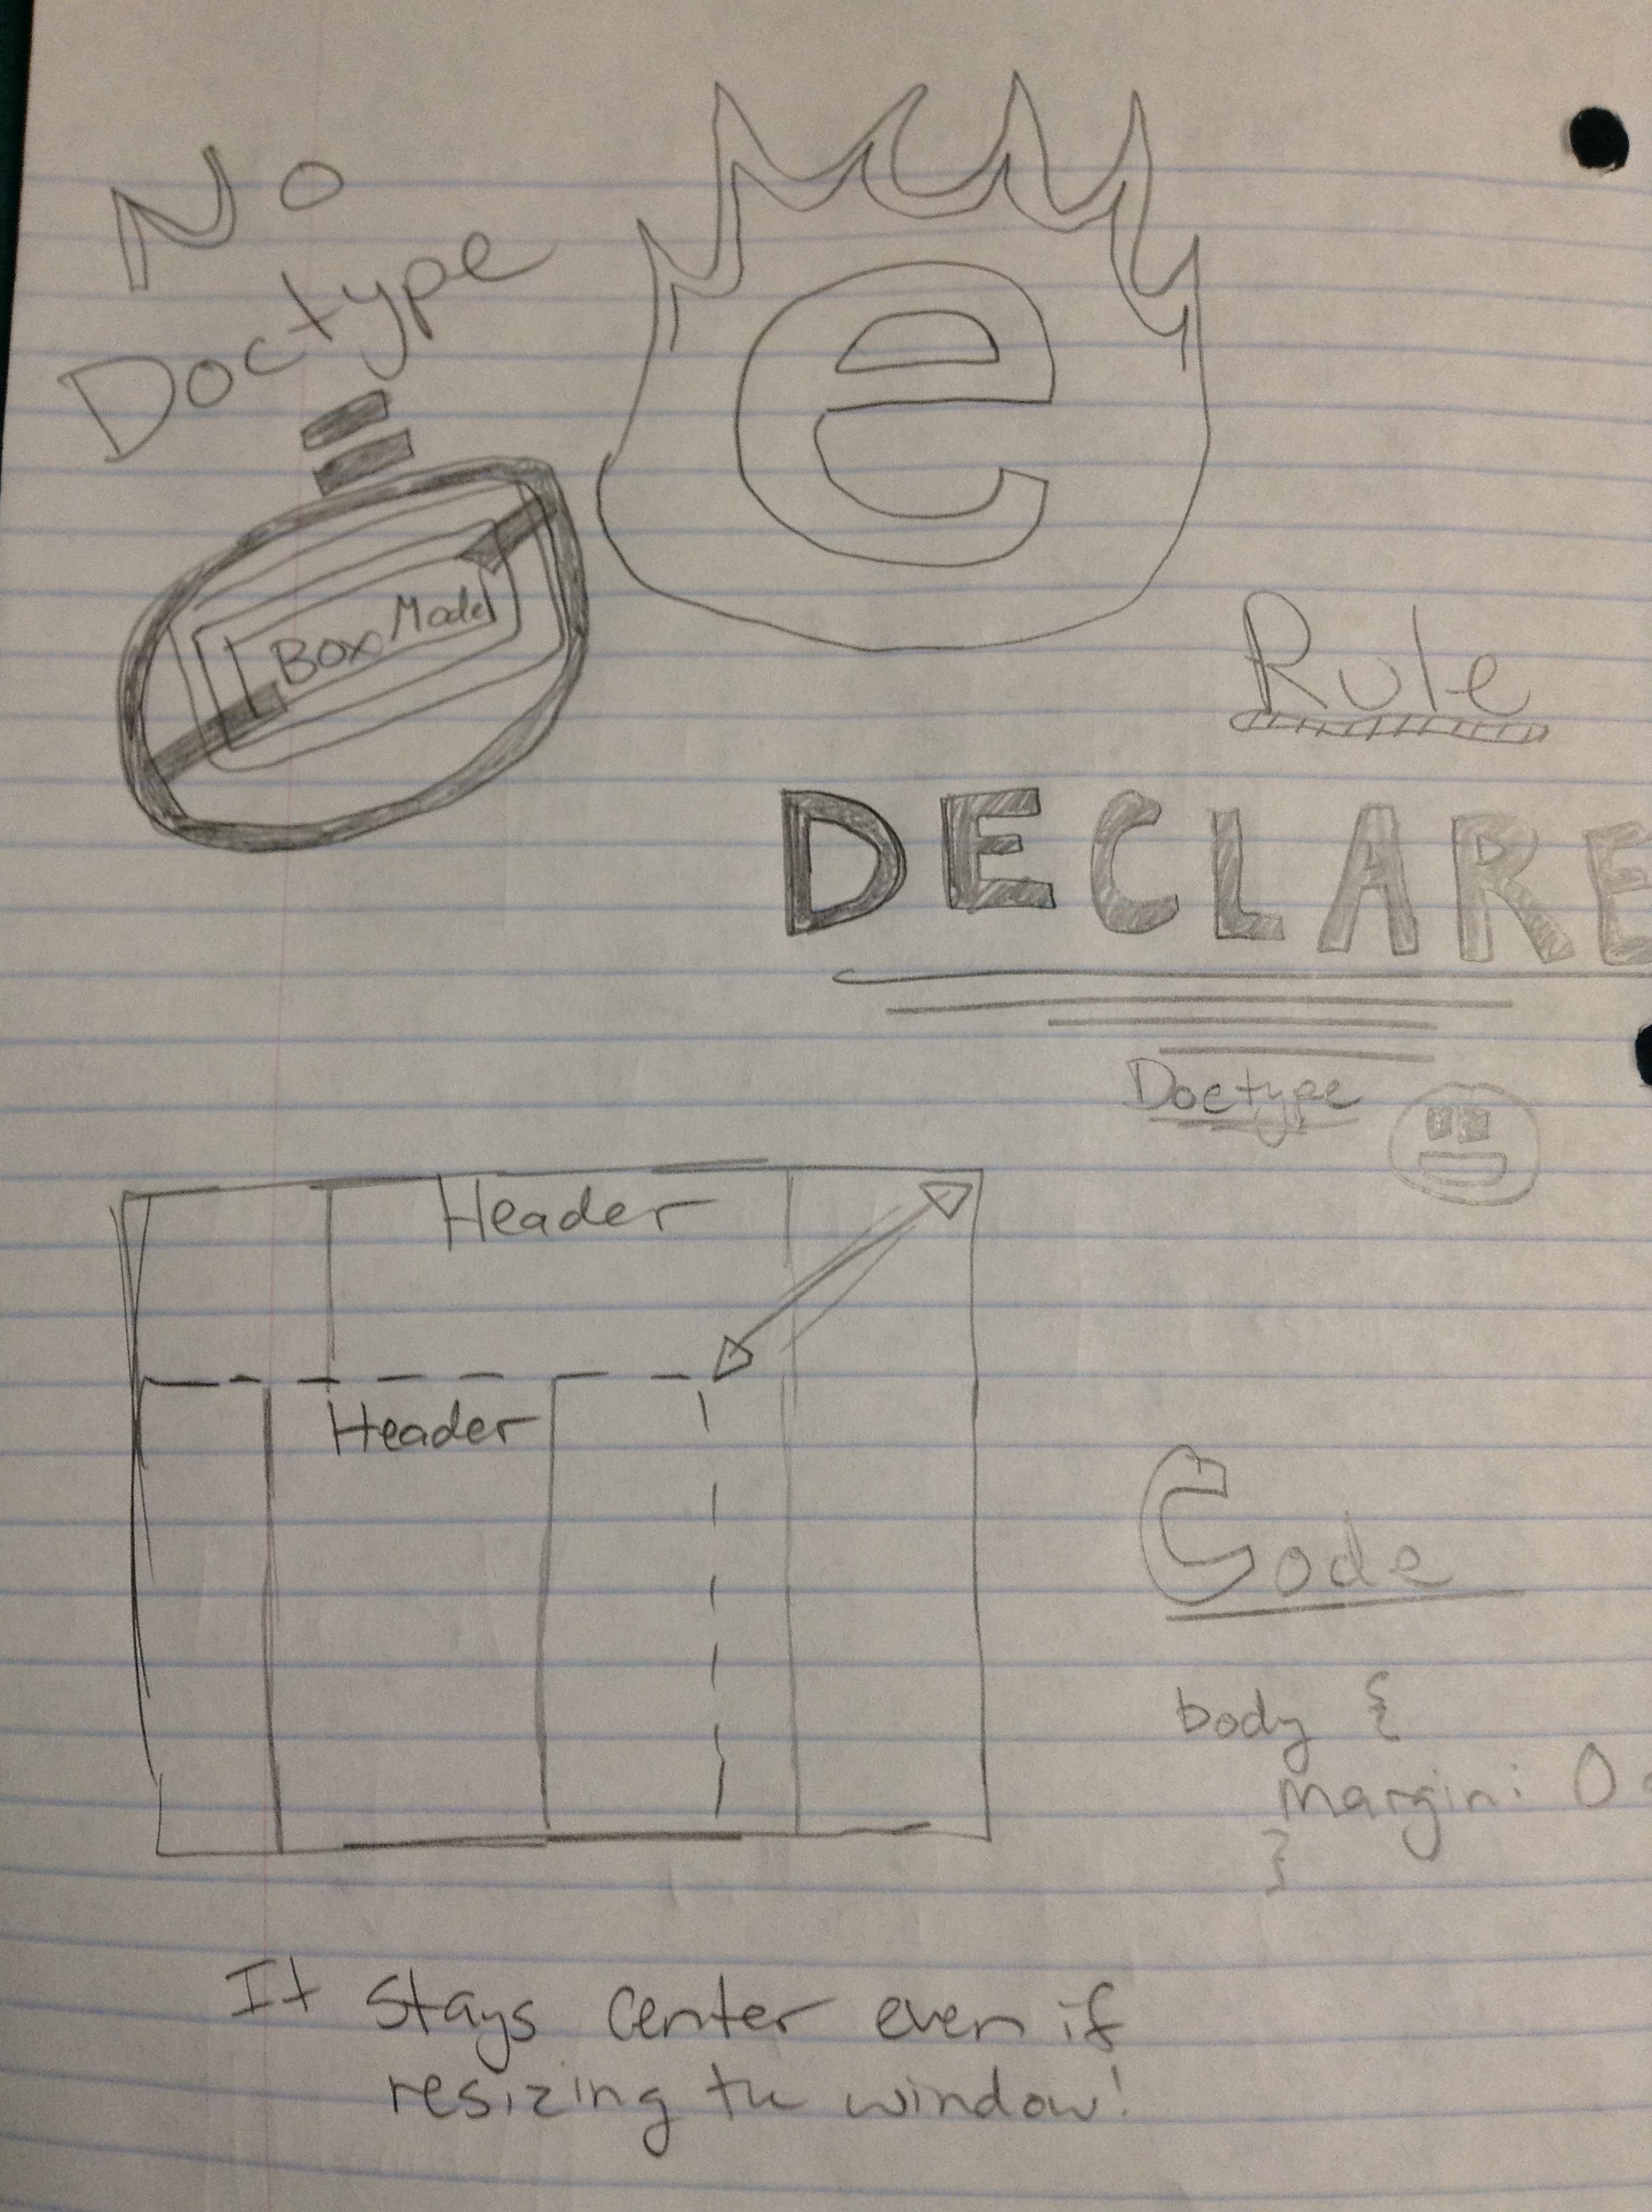 No
Doctype
e
Box Model
Rule
DECLARE
Doctype
Header
Header
Code
body {
margin: 0
}
It stays center even if
resizing the window!